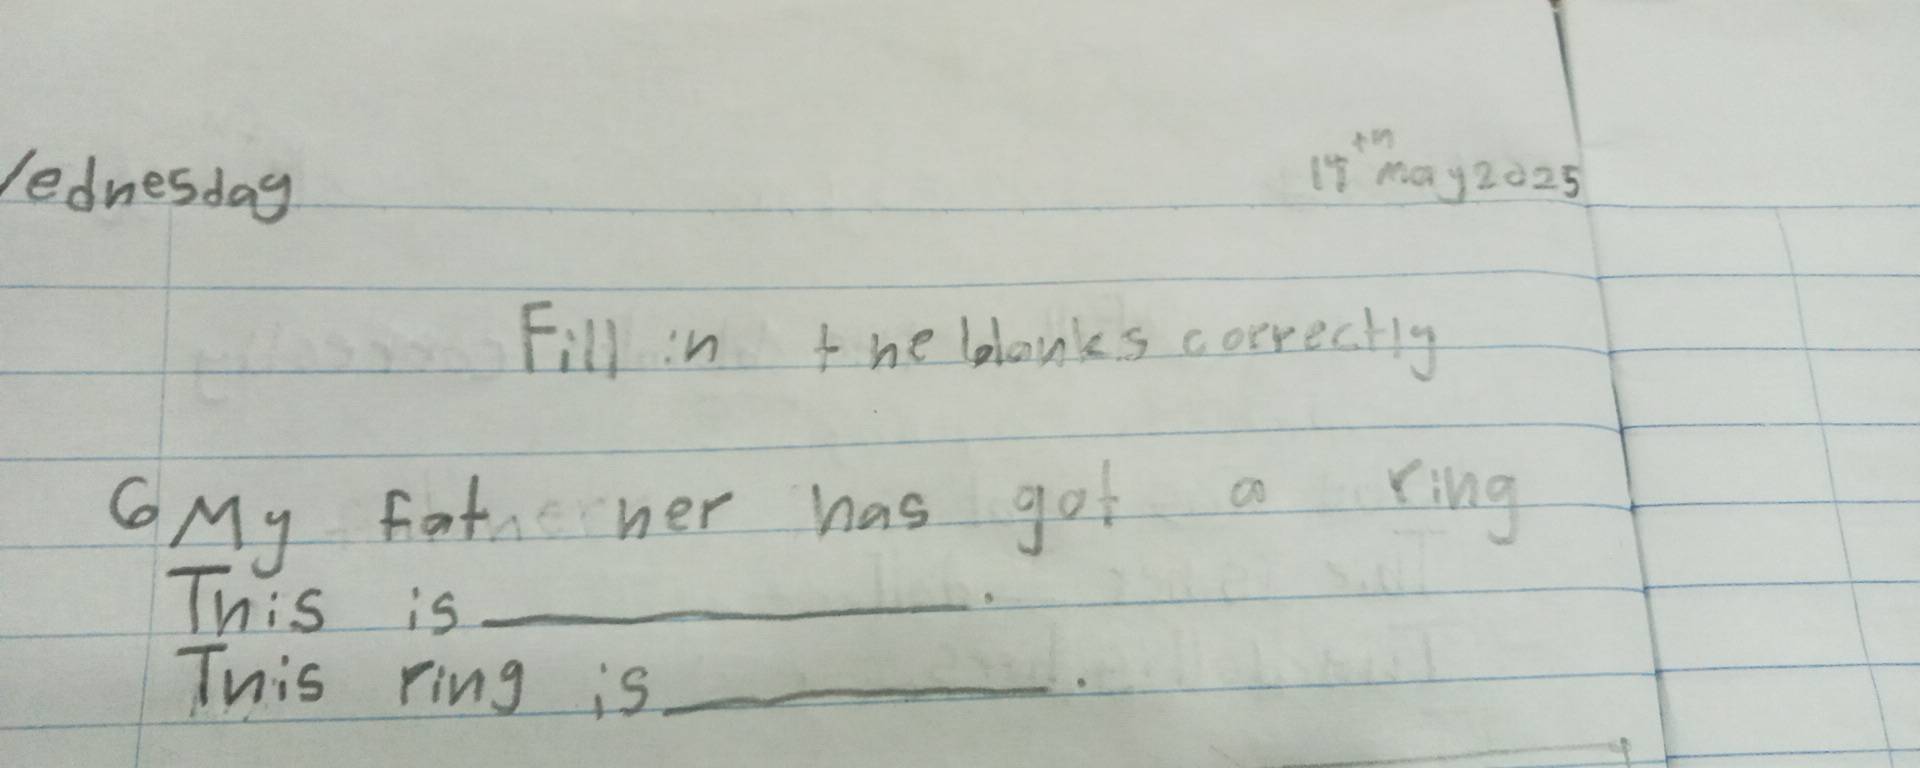 Wednesday 14th May 2025
Fill in the blanks correctly
6 My father has got a ring
This is ____________.
This ring is ____________.